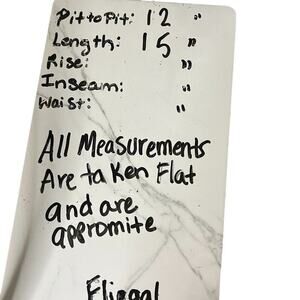 Pit to Pit: 12 "
Length: 15 "
Rise: "
Inseam: "
Waist: "
All Measurements
Are taken Flat
and are
appromite